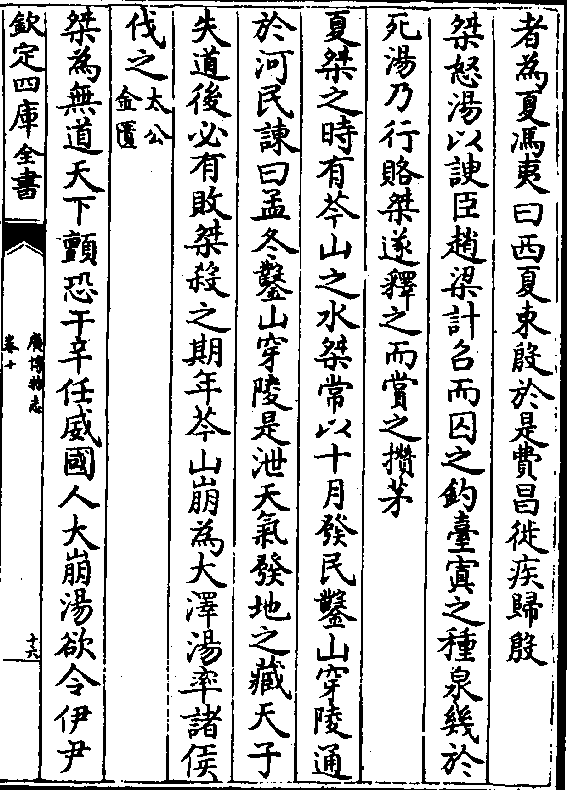 者為夏馮夷曰西夏東殷於是費昌徙疾歸殷
桀怒湯以諛臣趙梁計召而囚之鈞臺寘之種泉幾於
死湯乃行賂桀遂釋之而賞之攢茅
夏桀之時有芩山之水桀常以十月發民鑿山穿陵通
於河民諫曰孟冬鑿山穿陵是泄天氣發地之藏天子
失道後必有敗桀殺之期年芩山崩為大澤湯率諸侯
伐之太公金匱
桀為無道天下顫恐干辛任威國人大崩湯欲令伊尹
欽定四庫全書
廣博物志
卷十
十六